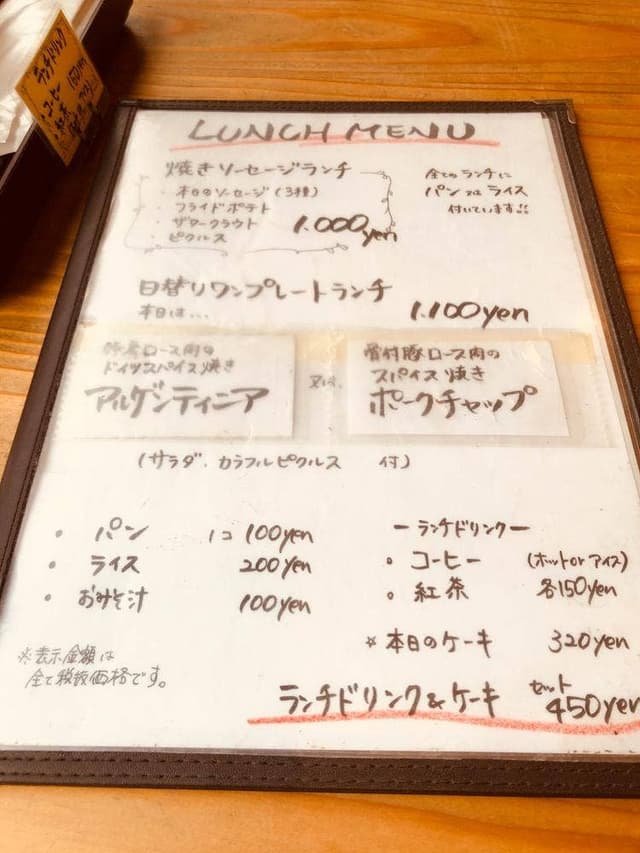 ランチドリンク
コーヒー 150yen
紅茶
LUNCH MENU
焼きソーセージランチ
・本日のソーセージ(3種)
・フライドポテト
・ザワークラウト
・ピクルス
1.000yen
全てのランチに
パン又はライス
付いています!!
日替りワンプレートランチ
本日は...
1.100yen
豚肩ロース肉の
ドイツスパイス焼き
アルゲンティニア
又は、
骨付豚ロース肉の
スパイス焼き
ポークチャップ
(サラダ、カラフルピクルス 付)
・パン 1コ 100yen
・ライス 200yen
・おみそ汁 100yen
ーランチドリンクー
・コーヒー (ホットorアイス)
・紅茶 各150yen
※本日のケーキ 320yen
※表示金額は
全て税抜価格です。
ランチドリンク&ケーキ セット 450yen